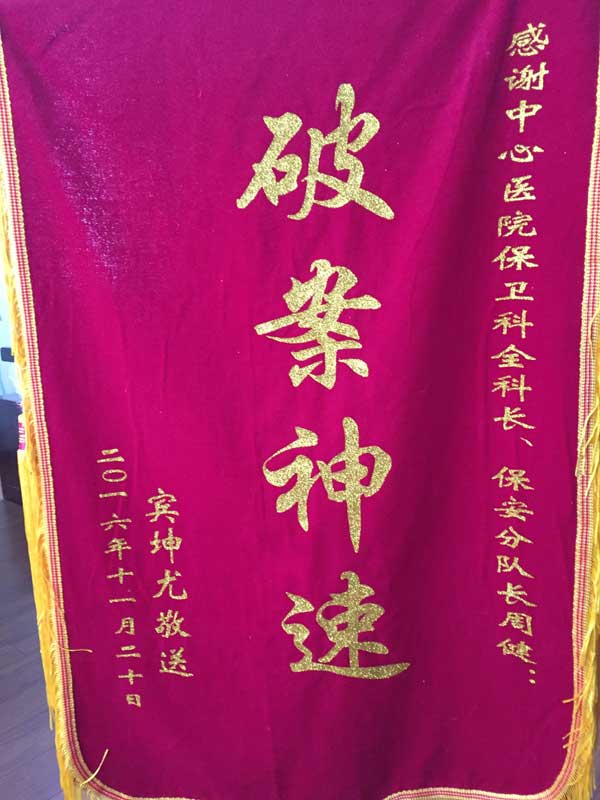 感谢中心医院保卫科全科长、保安分队长周健：
破案神速
宾坤尤敬送
二〇一六年十一月二十日